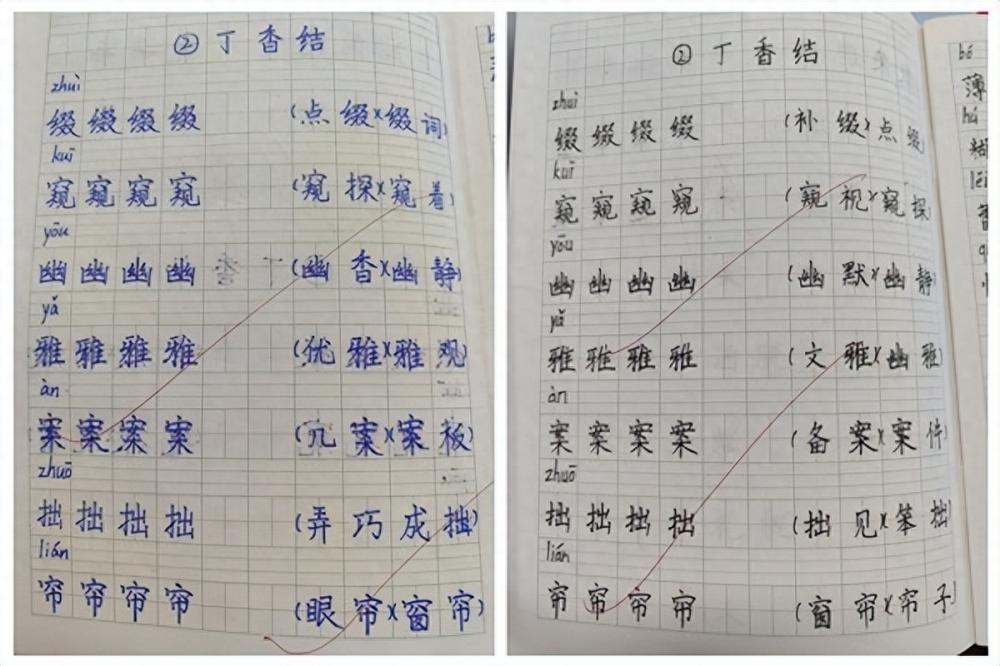 ②丁香结
zhuì
缀缀缀缀(点缀)(缀词)
kuī
窥窥窥窥(窥探)(窥着)
yōu
幽幽幽幽(幽香)(幽静)
yǎ
雅雅雅雅(优雅)(雅观)
àn
案案案案(几案)(案板)
zhuō
拙拙拙拙(弄巧成拙)
lián
帘帘帘帘(眼帘)(窗帘)
②丁香结
zhuì
缀缀缀缀(补缀)(点缀)
kuī
窥窥窥窥(窥视)(窥探)
yōu
幽幽幽幽(幽默)(幽静)
yǎ
雅雅雅雅(文雅)(幽雅)
àn
案案案案(备案)(案件)
zhuō
拙拙拙拙(拙见)(笨拙)
lián
帘帘帘帘(窗帘)(帘子)
bó
薄
hú
糊